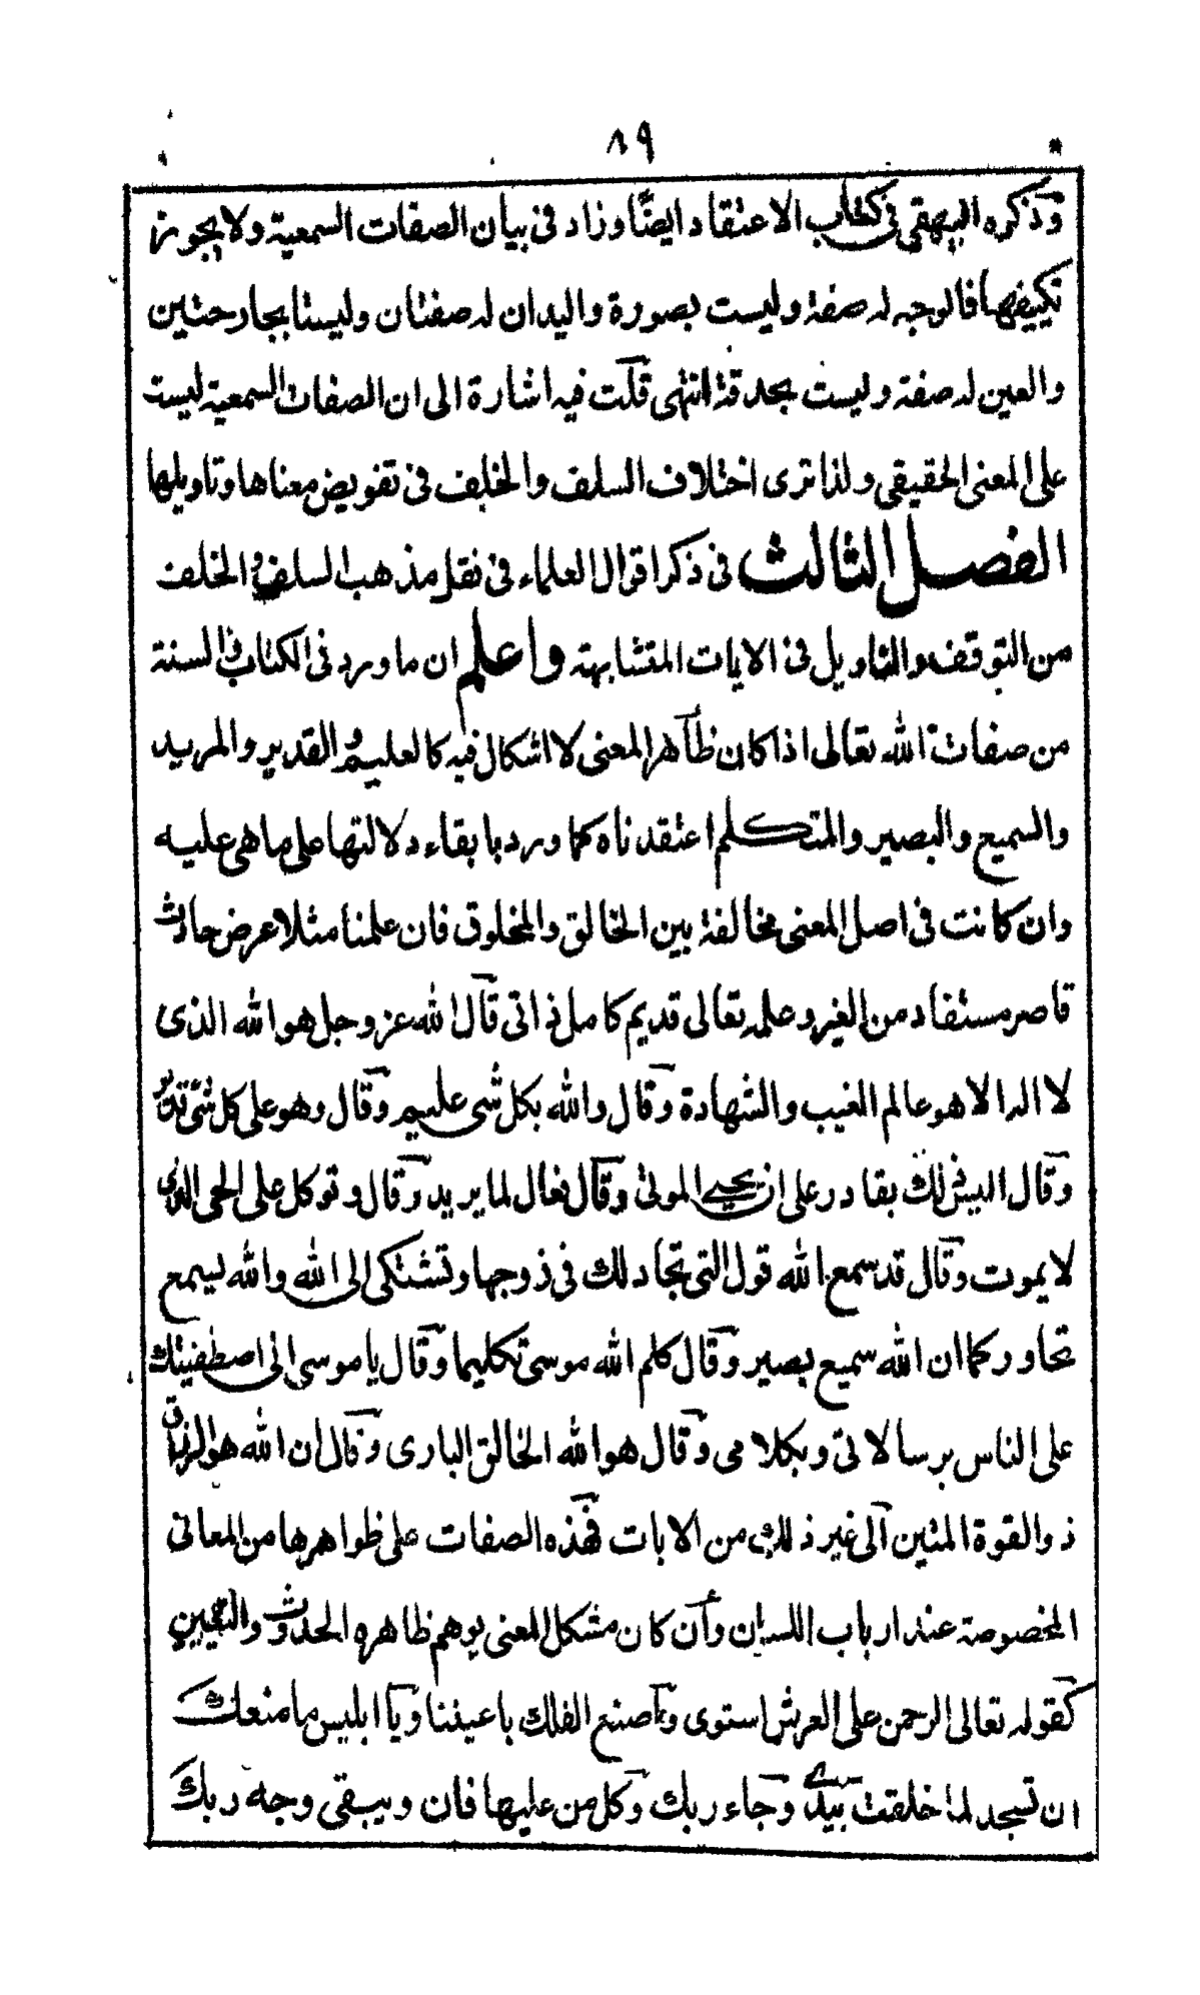 ٨٩
وذكره البيهقى فى كتاب الاعتقاد ايضًا وزاد فى بيان الصفات السمعية ولا يجوز
تكييفها فالوجه له صفة وليست بصورة واليدان له صفتان وليستا بجارحتين
والعين له صفة وليست بحدقة انتهى قلت فيه اشارة الى ان الصفات السمعية ليست
على المعنى الحقيقى ولذا ترى اختلاف السلف والخلف فى تفويض معناها وتاويلها
الفصل الثالث فى ذكر اقوال العلماء فى نقل مذهب السلف والخلف
من التوقف والتاويل فى الايات المتشابهة واعلم ان ما ورد فى الكتاب والسنة
من صفات الله تعالى اذا كان ظاهر المعنى لا اشكال فيه كالعليم والقدير والمريد
والسميع والبصير والمتكلم اعتقدناه كما ورد بابقاء دلالتها على ما هى عليه
وان كانت فى اصل المعنى مخالفة بين الخالق والمخلوق فان علمنا مثلا عرض حادث
قاصر مستفاد من الغير وعلمه تعالى قديم كامل ذاتى قال الله عز وجل هو الله الذى
لا اله الا هو عالم الغيب والشهادة وقال والله بكل شى عليم وقال وهو على كل شئ قدير
وقال اليس ذلك بقادر على ان يحيى الموتى وقال فعال لما يريد وقال وتوكل على الحى الذى
لا يموت وقال قد سمع الله قول التى تجادلك فى زوجها وتشتكى الى الله والله يسمع
تحاوركما ان الله سميع بصير وقال كلم الله موسى تكليما وقال يا موسى انى اصطفيتك
على الناس برسالاتى وبكلامى وقال هو الله الخالق البارى وقال ان الله هو الرزاق
ذو القوة المتين الى غير ذلك من الايات فهذه الصفات على ظواهرها من المعانى
المخصوصة عند ارباب اللسان وان كان مشكل المعنى يوهم ظاهره الحدوث
كقوله تعالى الرحمن على العرش استوى واصنع الفلك باعيننا ويا ابليس ما منعك
ان تسجد لما خلقت بيدى وجاء ربك وكل من عليها فان ويبقى وجه ربك